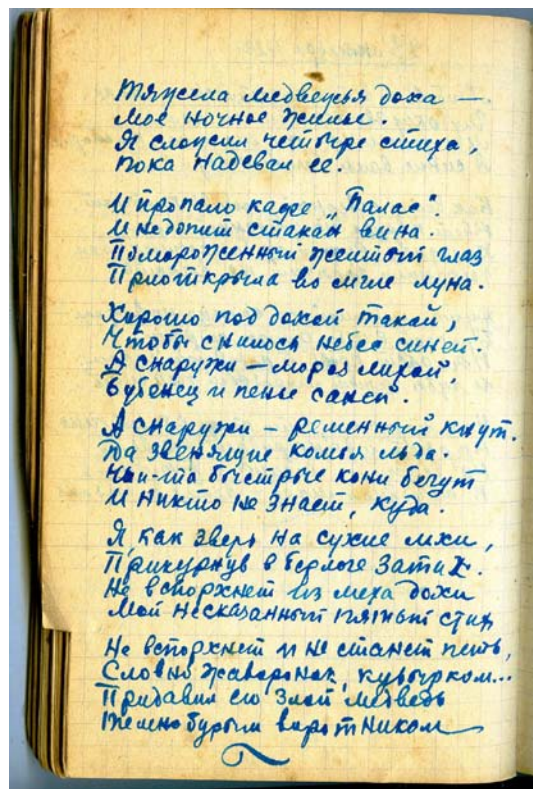 Тяжела медвежья доха —
Мое ночное жилье.
Я сложил четыре стиха,
Пока надевал ее.
И пропало кафе „Палас“.
И недопит стакан вина.
Помороженный желтый глаз
Приоткрыла во мгле луна.
Хорошо под дохой такой,
Чтобы снилось небес синей.
А снаружи — мороз лихой,
Бубенец и пенье саней.
А снаружи — ременный кнут.
Да звенящие комья льда.
Чьи-то быстрые кони бегут
И никто не знает, куда.
Я, как зверь на сухие мхи,
Прикурнув в берлоге затих.
Не вспорхнет из меха дохи
Мой несказанный пятый стих
Не вспорхнет и не станет петь,
Словно жаворонок, кувырком...
Придавил его злой медведь
Темнобурым воротником